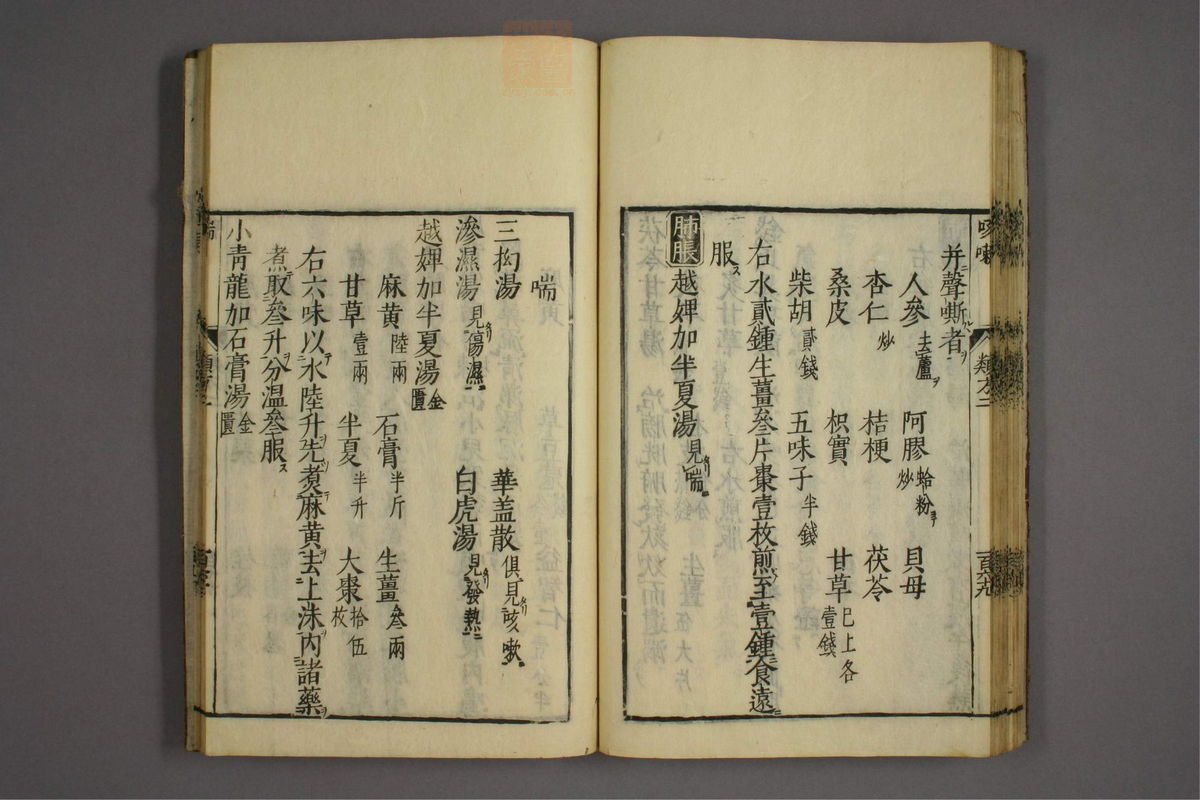 并聲嘶者
人參去蘆 阿膠蛤粉炒 貝母
杏仁炒 桔梗 茯苓
桑皮 枳實 甘草已上各壹錢
柴胡貳錢 五味子半錢
右水貳鍾生薑叄片棗壹枚煎至壹鍾食遠
服
肺脹 越婢加半夏湯見喘
喘
三拗湯 華盖散俱見咳嗽
滲濕湯見傷濕 白虎湯見發熱
越婢加半夏湯金匱
麻黄陸兩 石膏半斤 生薑叄兩
甘草壹兩 半夏半升 大棗拾伍枚
右六味以水陸升先煑麻黄去上沫内諸藥
煮取叄升分温叄服
小青龍加石膏湯金匱